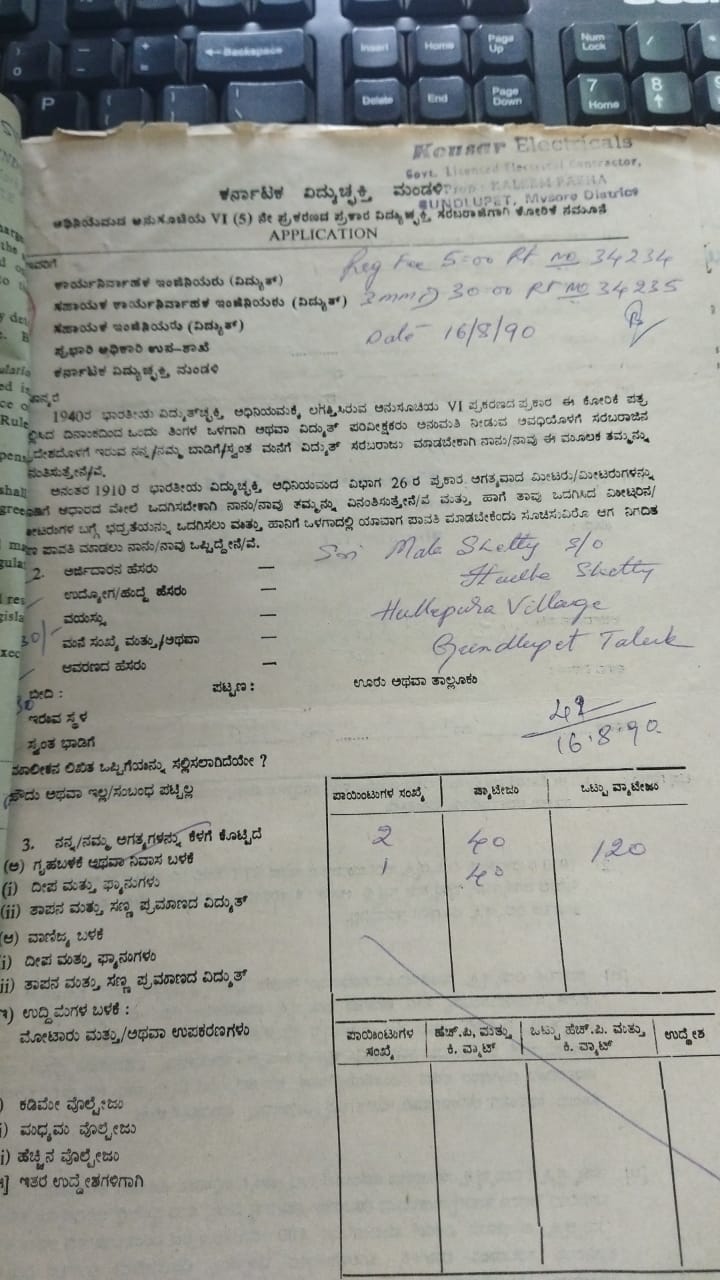 Backspace
Insert
Home
Page Up
Num Lock
/
P
Delete
End
Page Down
7 Home
8
Kousar Electricals
Govt. Licensed Electrical Contractor,
ಕರ್ನಾಟಕ ವಿದ್ಯುಚ್ಛಕ್ತಿ ಮಂಡಳಿ
GUNDLUPET, Mysore District
ಅಧಿನಿಯಮದ ಅನುಸೂಚಿಯ VI (5) ನೇ ಪ್ರಕರಣದ ಪ್ರಕಾರ ವಿದ್ಯುಚ್ಛಕ್ತಿ ಸರಬರಾಜಿಗಾಗಿ ಕೋರಿಕೆ ನಮೂನೆ
APPLICATION
Reg Fee 5=00 Rt No 34234
ಕಾರ್ಯನಿರ್ವಾಹಕ ಇಂಜಿನಿಯರು (ವಿದ್ಯುತ್)
ಸಹಾಯಕ ಕಾರ್ಯನಿರ್ವಾಹಕ ಇಂಜಿನಿಯರು (ವಿದ್ಯುತ್) 30 00 Rt No 34235
ಸಹಾಯಕ ಇಂಜಿನಿಯರು (ವಿದ್ಯುತ್)
Date 16/8/90
ಪ್ರಭಾರಿ ಅಧಿಕಾರಿ ಉಪ-ಶಾಖೆ
ಕರ್ನಾಟಕ ವಿದ್ಯುಚ್ಛಕ್ತಿ ಮಂಡಳಿ
ಮಾನ್ಯರೆ
1940ರ ಭಾರತೀಯ ವಿದ್ಯುತ್‌ಚ್ಛಕ್ತಿ ಅಧಿನಿಯಮಕ್ಕೆ ಲಗತ್ತಿಸಿರುವ ಅನುಸೂಚಿಯ VI ಪ್ರಕರಣದ ಪ್ರಕಾರ ಈ ಕೋರಿಕೆ ಪತ್ರ
ದಿನಾಂಕದಿಂದ ಒಂದು ತಿಂಗಳ ಒಳಗಾಗಿ ಅಥವಾ ವಿದ್ಯುತ್ ಪರಿವೀಕ್ಷಕರು ಅನುಮತಿ ನೀಡುವ ಅವಧಿಯೊಳಗೆ ಸರಬರಾಜಿನ
ಇರುವ ನನ್ನ/ನಮ್ಮ ಬಾಡಿಗೆ/ಸ್ವಂತ ಮನೆಗೆ ವಿದ್ಯುತ್ ಸರಬರಾಜು ಮಾಡಬೇಕಾಗಿ ನಾನು/ನಾವು ಈ ಮೂಲಕ ತಮ್ಮನ್ನು
ನಂತಿಸುತ್ತೇನೆ/ವೆ.
ಅನಂತರ 1910 ರ ಭಾರತೀಯ ವಿದ್ಯುಚ್ಛಕ್ತಿ ಅಧಿನಿಯಮದ ವಿಭಾಗ 26 ರ ಪ್ರಕಾರ ಅಗತ್ಯವಾದ ಮೀಟರು/ಮೀಟರುಗಳನ್ನು
ಆಧಾರದ ಮೇಲೆ ಒದಗಿಸಬೇಕಾಗಿ ನಾನು/ನಾವು ತಮ್ಮನ್ನು ವಿನಂತಿಸುತ್ತೇನೆ/ವೆ ಮತ್ತು ಹಾಗೆ ತಾವು ಒದಗಿಸಿದ ಮೀಟರಿನ/
ಮೀಟರುಗಳ ಬಗ್ಗೆ ಭದ್ರತೆಯನ್ನು ಒದಗಿಸಲು ಮತ್ತು ಹಾನಿಗೆ ಒಳಗಾದಲ್ಲಿ ಯಾವಾಗ ಪಾವತಿ ಮಾಡಬೇಕೆಂದು ಸೂಚಿಸುವಿರೊ ಆಗ ನಿಗದಿತ
ಪಾವತಿ ಮಾಡಲು ನಾನು/ನಾವು ಒಪ್ಪಿದ್ದೇನೆ/ವೆ.
Sri Mala Shetty S/o
2. ಅರ್ಜಿದಾರನ ಹೆಸರು —
Shetty
ಉದ್ಯೋಗ/ತಂದೆ ಹೆಸರು —
ವಯಸ್ಸು — Hullepura Village
ಮನೆ ಸಂಖ್ಯೆ ಮತ್ತು/ಅಥವಾ — Gundlupet Taluk
ಆವರಣದ ಹೆಸರು —
ಬೀದಿ : ಪಟ್ಟಣ : ಊರು ಅಥವಾ ತಾಲ್ಲೂಕು
ಇರುವ ಸ್ಥಳ
ಸ್ವಂತ ಭಾಡಿಗೆ
16.8.90
ಮಾಲೀಕನ ಲಿಖಿತ ಒಪ್ಪಿಗೆಯನ್ನು ಸಲ್ಲಿಸಲಾಗಿದೆಯೇ ?
ಹೌದು ಅಥವಾ ಇಲ್ಲ/ಸಂಬಂಧ ಪಟ್ಟಿಲ್ಲ
ಪಾಯಿಂಟುಗಳ ಸಂಖ್ಯೆ ವ್ಯಾಟೇಜು ಒಟ್ಟು ವ್ಯಾಟೇಜು
3. ನನ್ನ/ನಮ್ಮ ಅಗತ್ಯಗಳನ್ನು ಕೆಳಗೆ ಕೊಟ್ಟಿದೆ
2 40 120
(ಅ) ಗೃಹಬಳಕೆ ಅಥವಾ ನಿವಾಸ ಬಳಕೆ
1 40
(i) ದೀಪ ಮತ್ತು ಫ್ಯಾನುಗಳು
(ii) ತಾಪನ ಮತ್ತು ಸಣ್ಣ ಪ್ರಮಾಣದ ವಿದ್ಯುತ್
(ಆ) ವಾಣಿಜ್ಯ ಬಳಕೆ
i) ದೀಪ ಮತ್ತು ಫ್ಯಾನುಗಳು
ii) ತಾಪನ ಮತ್ತು ಸಣ್ಣ ಪ್ರಮಾಣದ ವಿದ್ಯುತ್
ಇ) ಉದ್ದಿಮೆಗಳ ಬಳಕೆ :
ಮೋಟಾರು ಮತ್ತು/ಅಥವಾ ಉಪಕರಣಗಳು
ಪಾಯಿಂಟುಗಳ ಸಂಖ್ಯೆ ಹೆಚ್.ಪಿ. ಮತ್ತು ಕಿ. ವ್ಯಾಟ್ ಒಟ್ಟು ಹೆಚ್.ಪಿ. ಮತ್ತು ಕಿ. ವ್ಯಾಟ್ ಉದ್ದೇಶ
) ಕಡಿಮೇ ವೊಲ್ಟೇಜು
i) ಮಧ್ಯಮ ವೊಲ್ಟೇಜು
i) ಹೆಚ್ಚಿನ ವೊಲ್ಟೇಜು
ಇತರೆ ಉದ್ದೇಶಗಳಿಗಾಗಿ